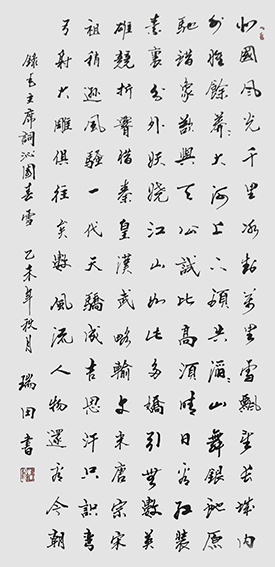 北國風光千里冰封萬里雪飄望長城内
外惟餘莽〻大河上下頓失滔〻山舞銀蛇原
馳蠟象欲與天公試比高須晴日看紅裝
素裹分外妖嬈江山如此多嬌引無數英
雄競折腰惜秦皇漢武略輸文采唐宗宋
祖稍遜風騷一代天驕成吉思汗只識彎
弓射大雕俱往矣數風流人物還看今朝
錄毛主席詞沁園春雪 乙未年秋月 瑞田書